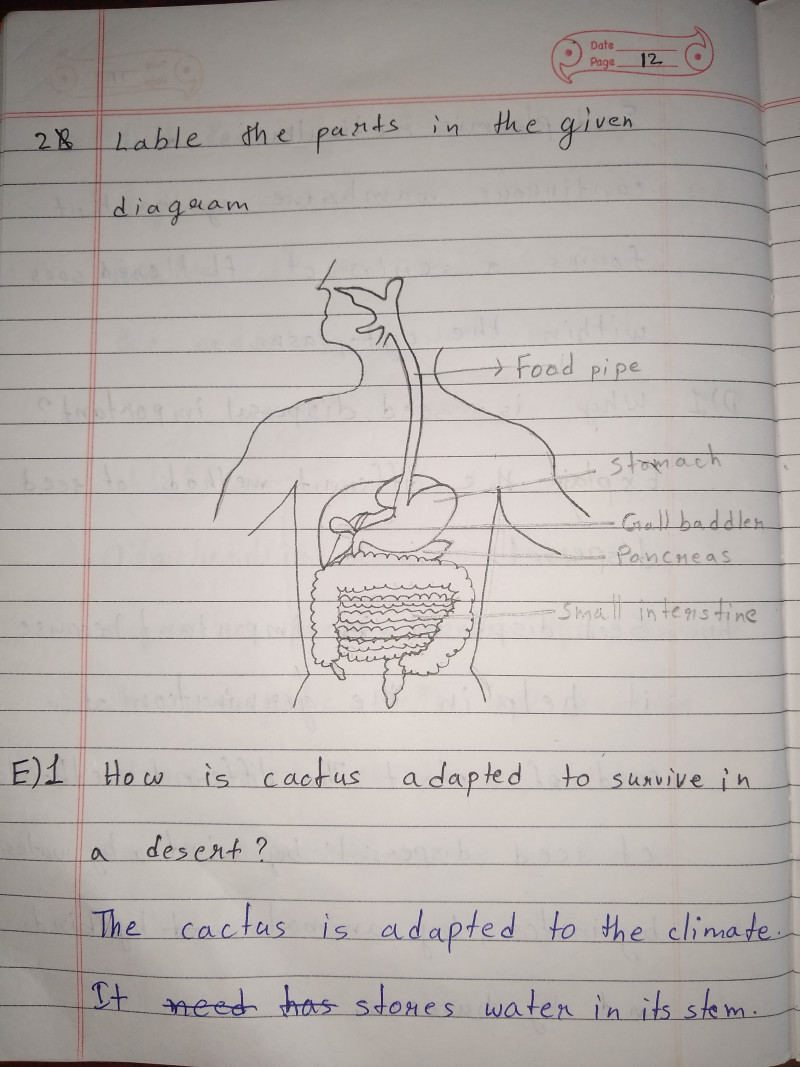 Date
Page 12
28 Lable the parts in the given
diagram
Food pipe
Stomach
Gall baddler
Pancreas
Small interstine
E)1 How is cactus adapted to survive in
a desert?
The cactus is adapted to the climate.
It need has stores water in its stem.